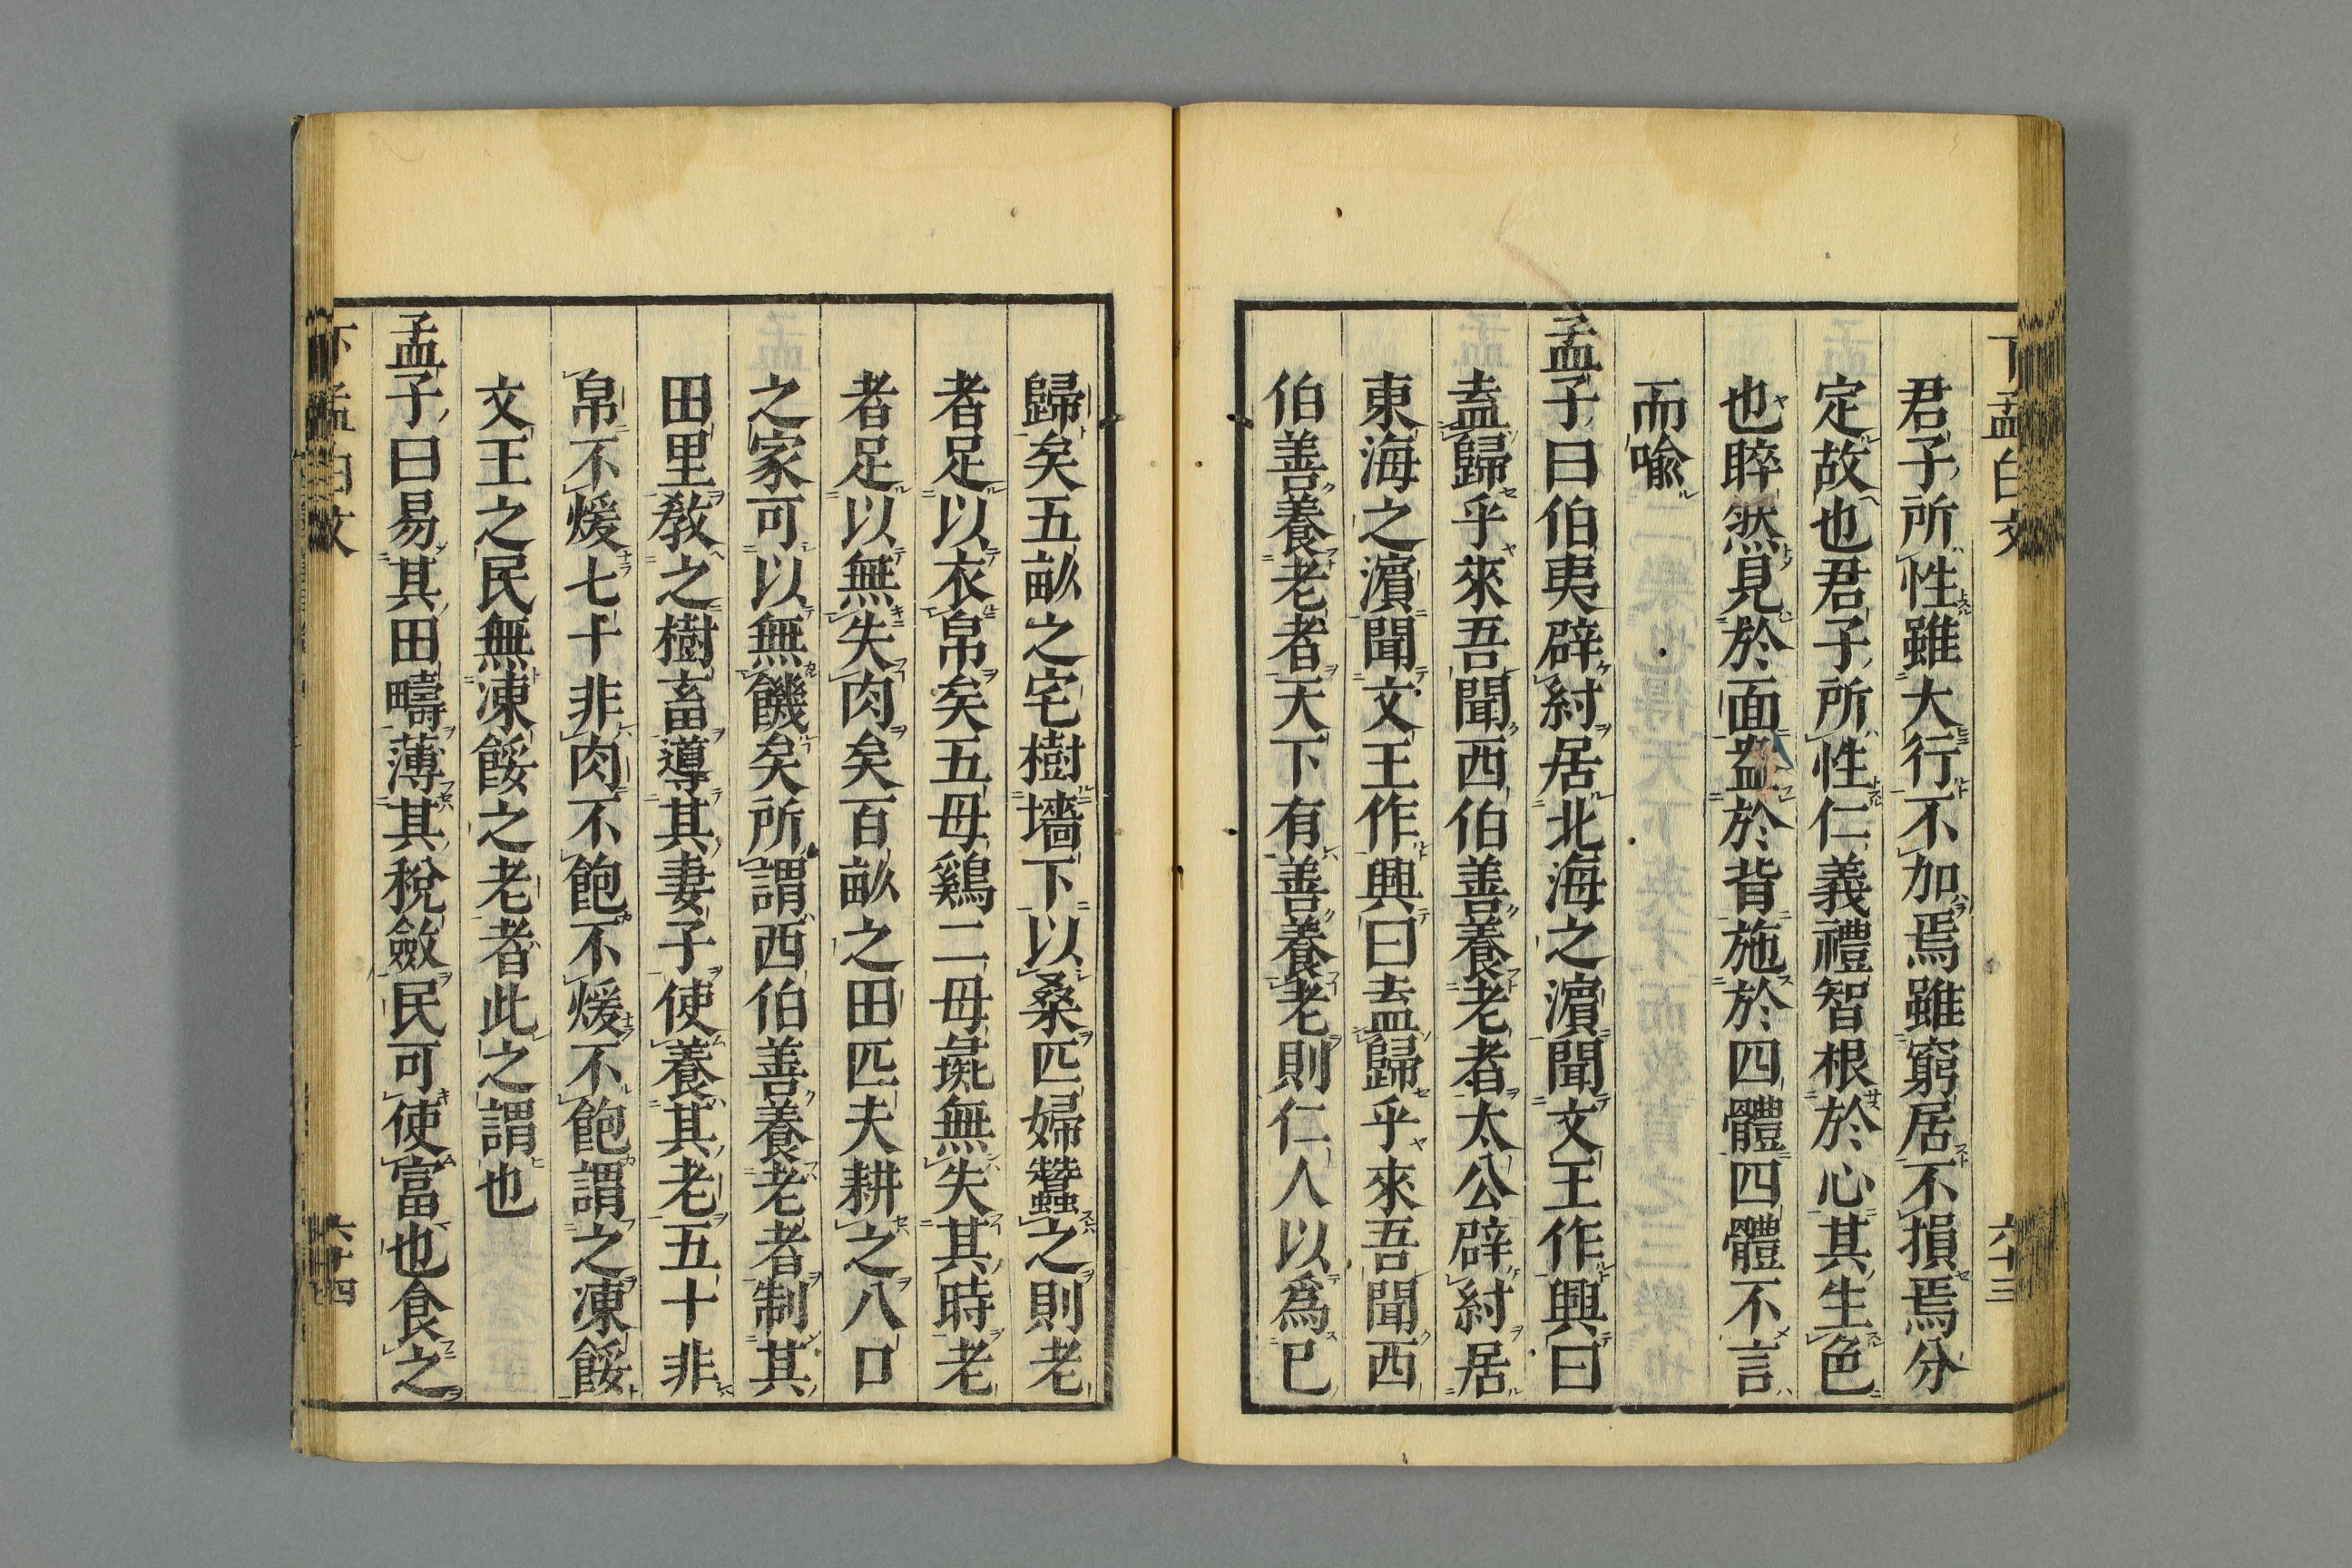 君子所性雖大行不加焉雖窮居不損焉分
定故也君子所性仁義禮智根於心其生色
也睟然見於面盎於背施於四體四體不言
而喩
孟子曰伯夷辟紂居北海之濵聞文王作興曰
盍歸乎來吾聞西伯善養老者太公辟紂居
東海之濵聞文王作興曰盍歸乎來吾聞西
伯善養老者天下有善養老則仁人以爲己
六十三
歸矣五畝之宅樹墻下以桑匹婦蠶之則老
者足以衣帛矣五母鷄二母彘無失其時老
者足以無失肉矣百畝之田匹夫耕之八口
之家可以無饑矣所謂西伯善養老者制其
田里敎之樹畜導其妻子使養其老五十非
帛不煖七十非肉不飽不煖不飽謂之凍餒
文王之民無凍餒之老者此之謂也
孟子曰易其田疇薄其稅斂民可使富也食之
六十四